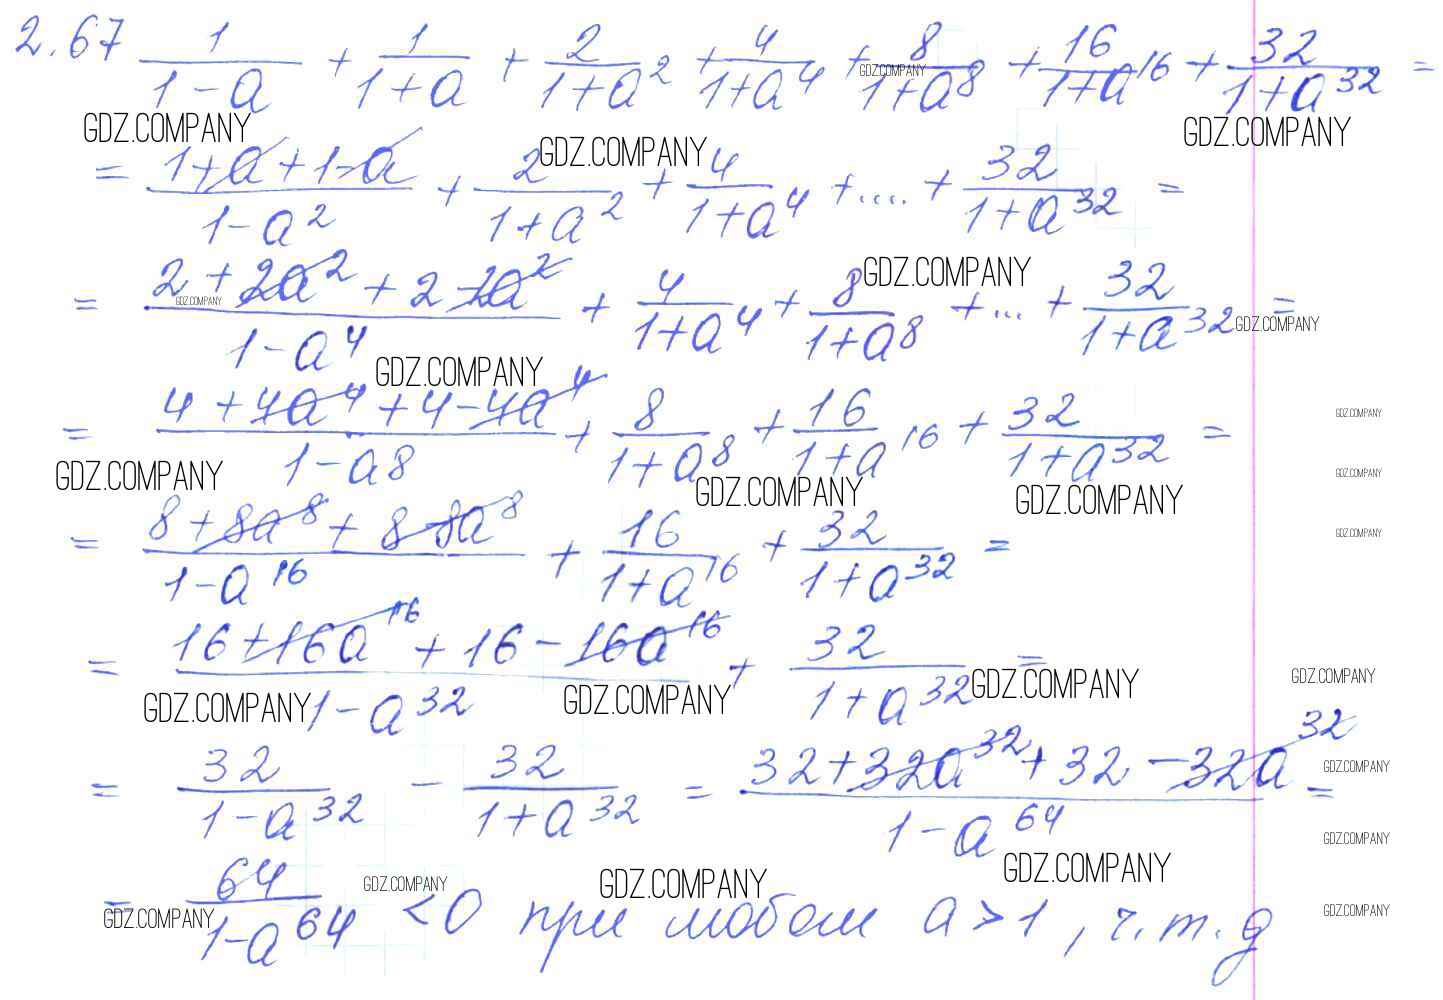 2.67 1/(1-a) + 1/(1+a) + 2/(1+a^2) + 4/(1+a^4) + 8/(1+a^8) + 16/(1+a^16) + 32/(1+a^32) =
GDZ.COMPANY
GDZ.COMPANY GDZ.COMPANY
= (1+a+1-a)/(1-a^2) + 2/(1+a^2) + 4/(1+a^4) +....+ 32/(1+a^32) =
GDZ.COMPANY
GDZ.COMPANY
= (2+2a^2+2-2a^2)/(1-a^4) + 4/(1+a^4) + 8/(1+a^8) +...+ 32/(1+a^32) =
GDZ.COMPANY
GDZ.COMPANY
GDZ.COMPANY
GDZ.COMPANY
= (4+4a^4+4-4a^4)/(1-a^8) + 8/(1+a^8) + 16/(1+a^16) + 32/(1+a^32) =
GDZ.COMPANY
GDZ.COMPANY
GDZ.COMPANY GDZ.COMPANY GDZ.COMPANY
= (8+8a^8+8-8a^8)/(1-a^16) + 16/(1+a^16) + 32/(1+a^32) =
GDZ.COMPANY
= (16+16a^16+16-16a^16)/(1-a^32) + 32/(1+a^32) =
GDZ.COMPANY GDZ.COMPANY GDZ.COMPANY GDZ.COMPANY
= 32/(1-a^32) - 32/(1+a^32) = (32+32a^32+32-32a^32)/(1-a^64) =
GDZ.COMPANY
GDZ.COMPANY
GDZ.COMPANY
= 64/(1-a^64) <0 при любом a>1, ч.т.д
GDZ.COMPANY GDZ.COMPANY GDZ.COMPANY GDZ.COMPANY